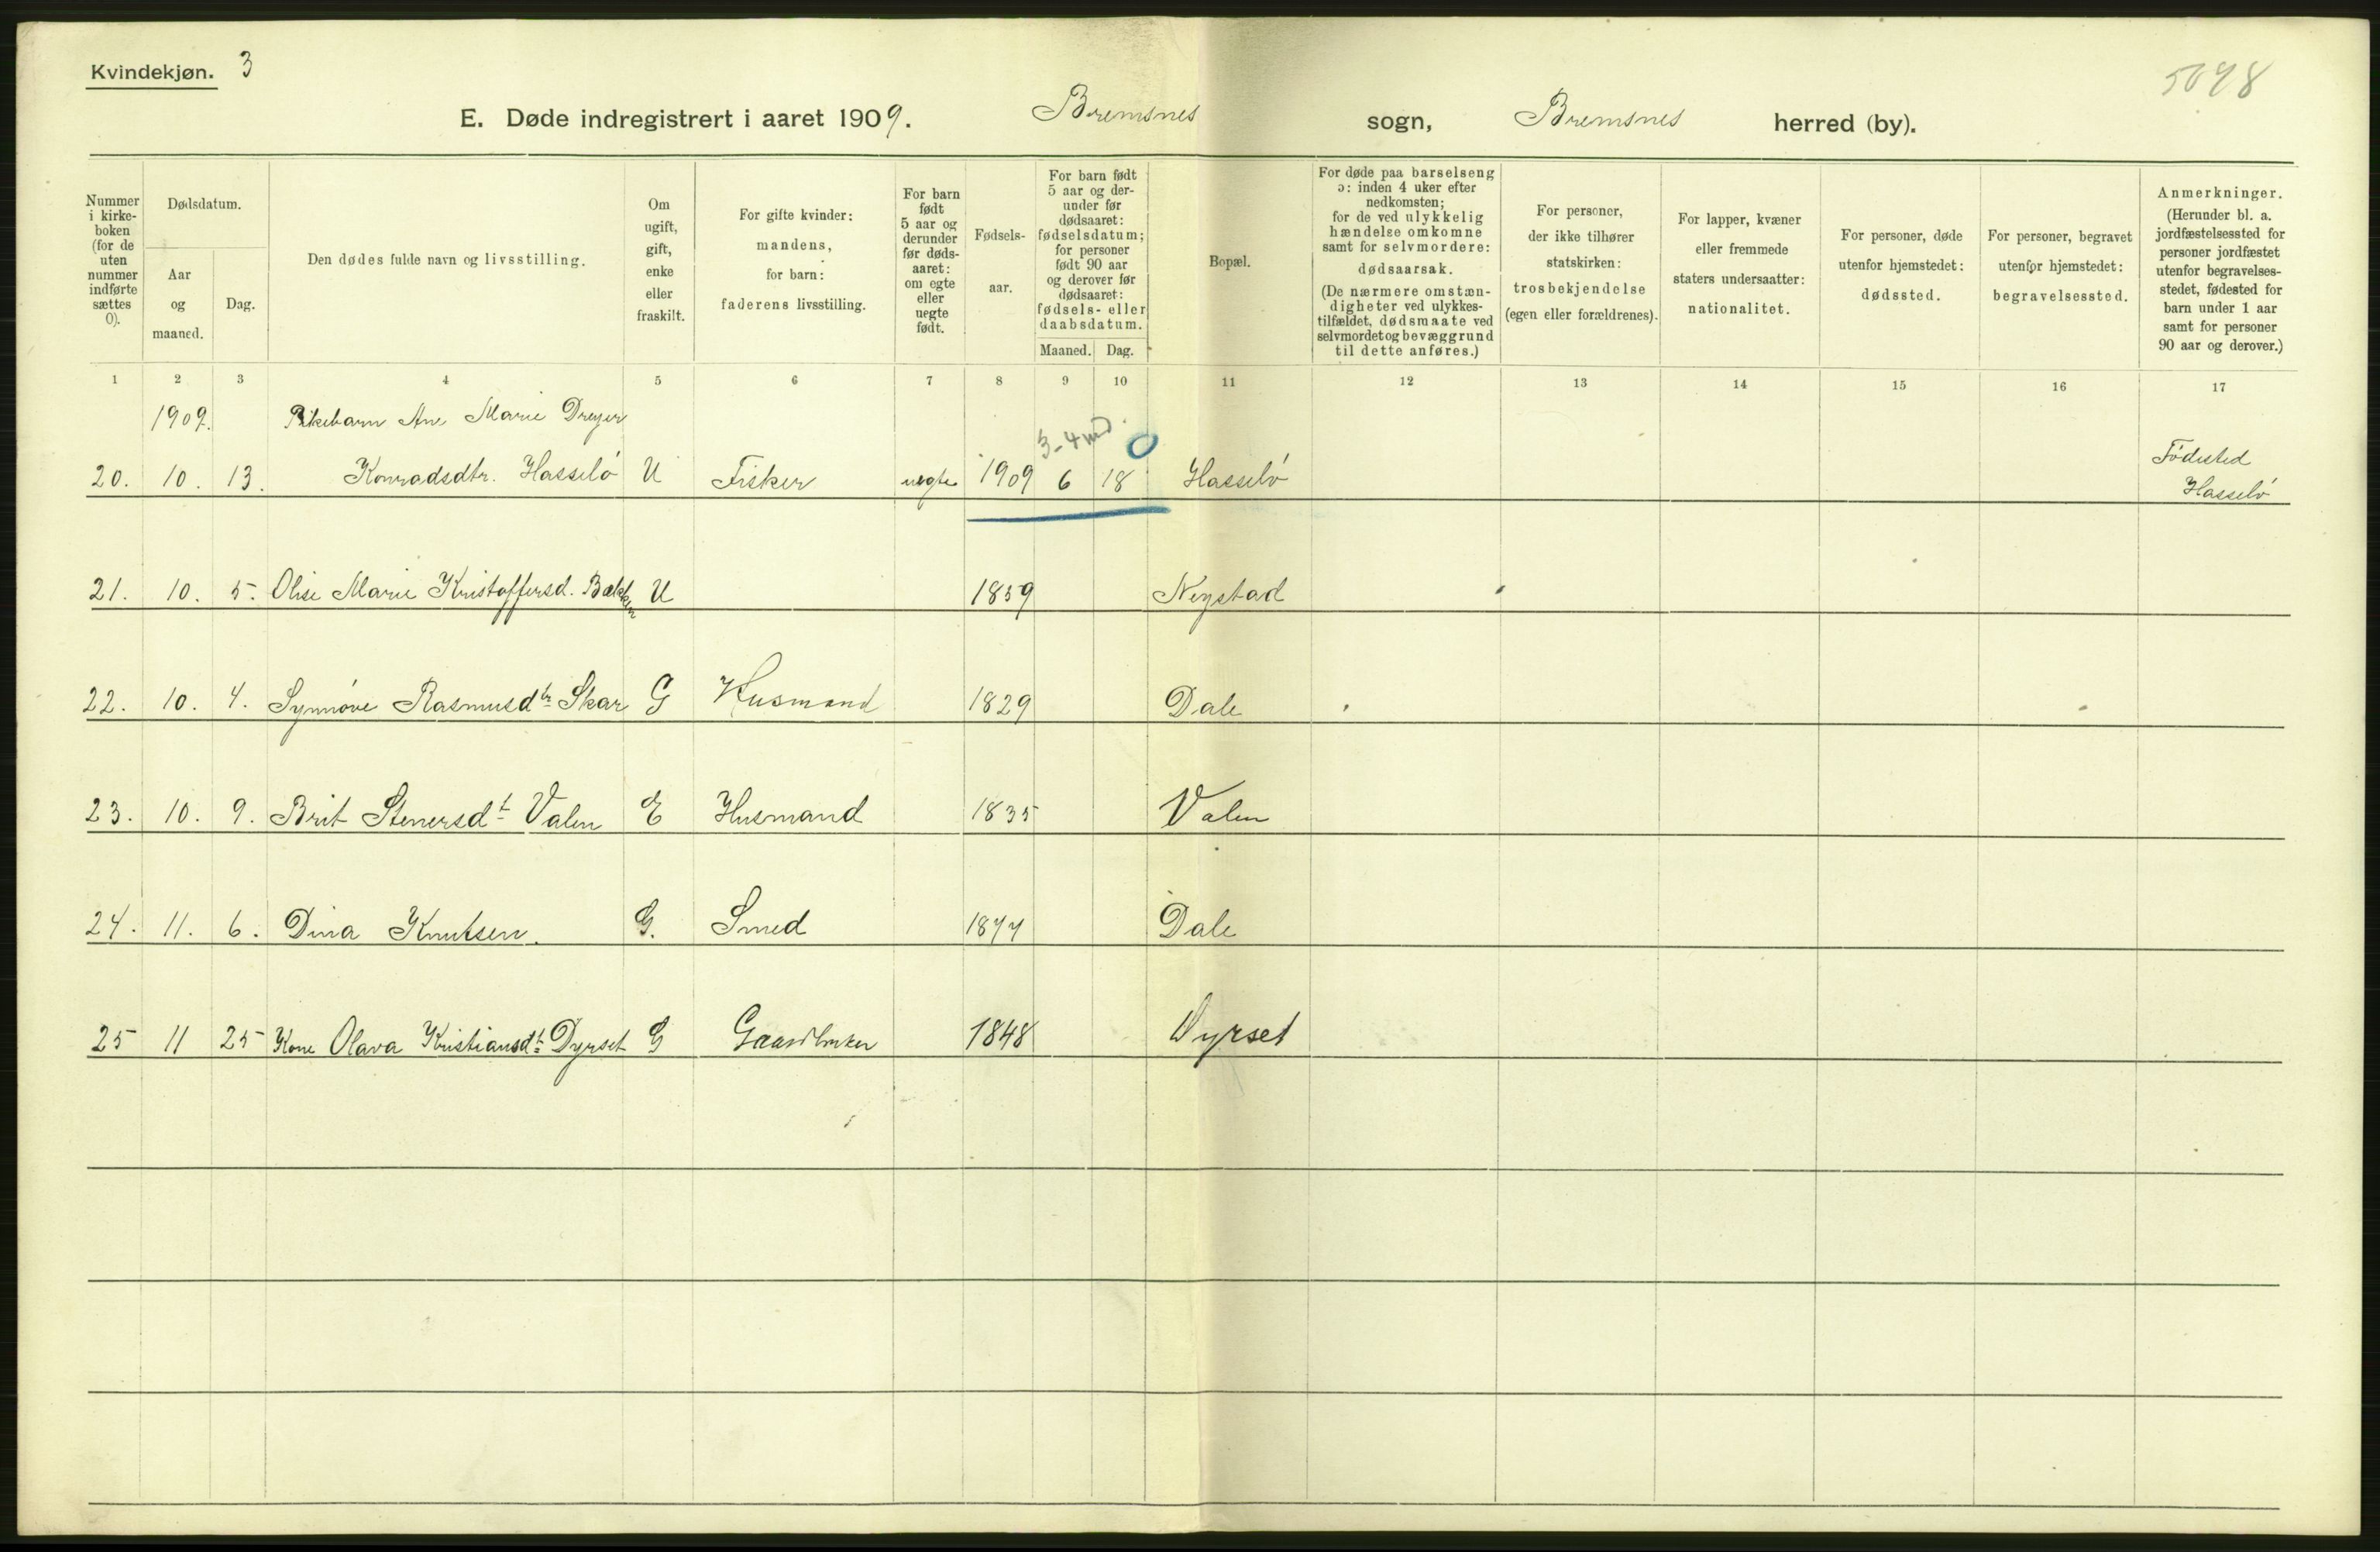 Kvindekjøn. 3
5078
E. Døde indregistrert i aaret 1909. Bremsnes sogn, Bremsnes herred (by).
Nummer i kirkeboken (for de uten nummer indførte sættes 0).
Dødsdatum.
Aar og maaned.
Dag.
Den dødes fulde navn og livsstilling.
Om ugift, gift, enke eller fraskilt.
For gifte kvinder: mandens, for barn: faderens livsstilling.
For barn født 5 aar og derunder før dødsaaret: om egte eller uegte født.
Fødselsaar.
For barn født 5 aar og derunder før dødsaaret: fødselsdatum; for personer født 90 aar og derover før dødsaaret: fødsels- eller daabsdatum.
Maaned. Dag.
Bopæl.
For døde paa barselseng ɔ: inden 4 uker efter nedkomsten; for de ved ulykkelig hændelse omkomne samt for selvmordere: dødsaarsak. (De nærmere omstændigheter ved ulykkestilfældet, dødsmaate ved selvmordet og bevæggrund til dette anføres.)
For personer, der ikke tilhører statskirken: trosbekjendelse (egen eller forældrenes).
For lapper, kvæner eller fremmede staters undersaatter: nationalitet.
For personer, døde utenfor hjemstedet: dødssted.
For personer, begravet utenfor hjemstedet: begravelsessted.
Anmerkninger. (Herunder bl. a. jordfæstelsessted for personer jordfæstet utenfor begravelsesstedet, fødested for barn under 1 aar samt for personer 90 aar og derover.)
1 2 3 4 5 6 7 8 9 10 11 12 13 14 15 16 17
1909. Pikebarn Ane Marie Dreyer
3-4 md. 0
20. 10. 13. Konradsdtr. Hasselö U Fisker uegte 1909 6 18 Hasselö Födested Hasselö
21. 10. 5. Olise Marie Kristoffersd. Bakken U 1859 Neystad
22. 10. 4. Synnöve Rasmusdtr Skar G Husmand 1829 Dale
23. 10. 9. Brit Stenersdt Valen E Husmand 1835 Valen
24. 11. 6. Dina Knutsen. G. Smed 1877 Dale
25 11 25 Kone Olava Kristiansdt Dyrset G Gaardbruker 1848 Dyrset